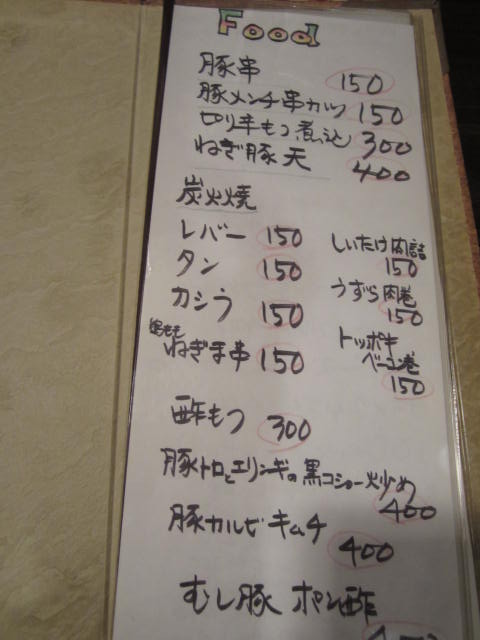 Food
豚串 150
豚メンチ串カツ 150
切り羊もつ煮込 300
ねぎ豚天 400
炭火焼
レバー 150
タン 150
カシラ 150
ねぎま串 150
しいたけ肉詰
150
うずら肉巻
150
トッポキ
ベーコン巻
150
酢もつ 300
豚トロとエリンギの黒コショー炒め
400
豚カルビキムチ
400
むし豚 ポン酢